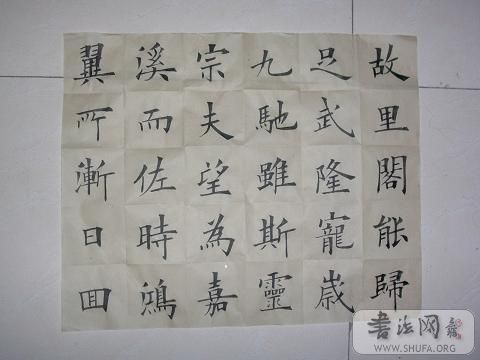 故里閣能歸
足武隆寵歲
九馳雖斯靈
宗夫望為嘉
溪而佐時鴻
翼所漸日囬
书法网
WWW.SHUFA.ORG